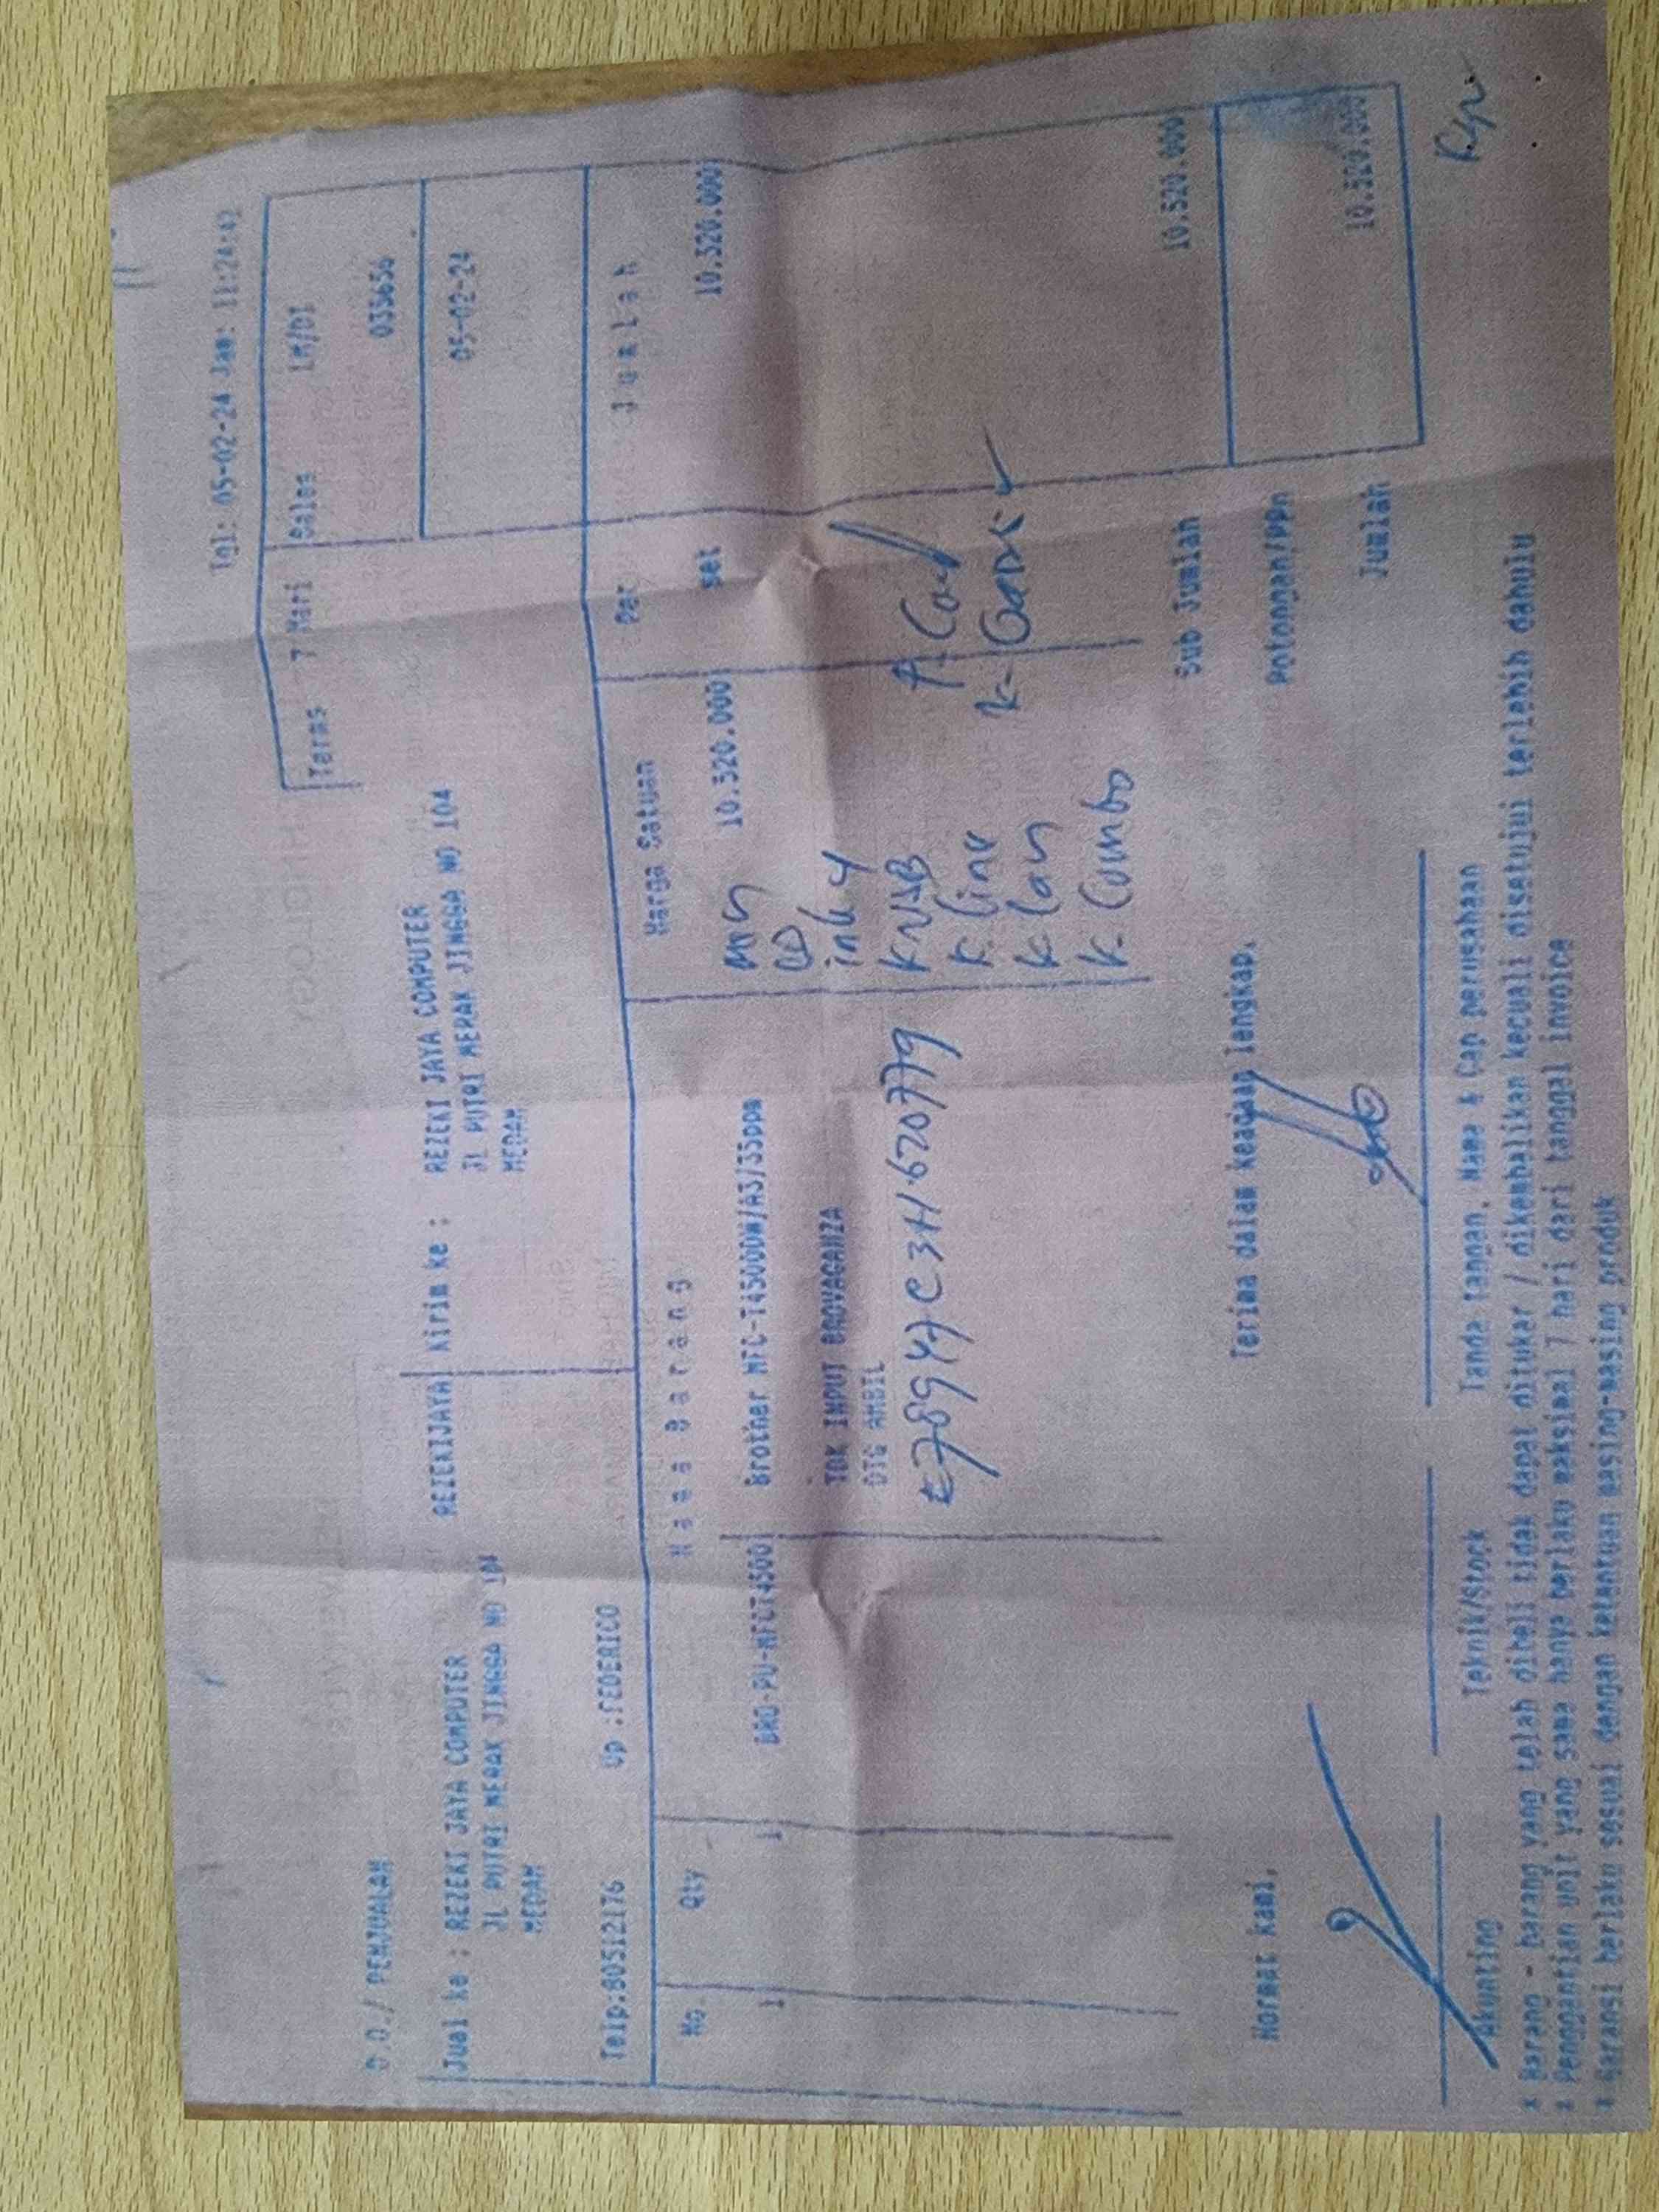 Tgl: 05-02-24 Jam: 11:24:42
D.O./ PENJUALAN
Terms 7 Hari Sales LM/DI
035656
05-02-24
Jual ke : REZEKI JAYA COMPUTER REZEKIJAYA Kirim ke : REZEKI JAYA COMPUTER
JL PUTRI MERAK JINGGA NO 104 JL PUTRI MERAK JINGGA NO 104
MEDAN MEDAN
Telp:80512176 Up :FEDERICO
No. Qty Nama Barang Harga Satuan Per Jumlah
1 1 BRO-PU-MFCT4500 Brother MFC-T4500DW/A3/35ppm 10.520.000 set 10.520.000
TDK INPUT BROVAGANZA
DTG AMBIL
E78947C3H620779
ink 4
K USB
K Line
K Lan
K. Combo
Sub Jumlah 10.520.000
Potongan/PPn
Jumlah 10.520.000
Hormat kami, Terima dalam keadaan lengkap,
Akunting Teknik/Stock Tanda tangan, Nama & Cap perusahaan
* Barang - barang yang telah dibeli tidak dapat ditukar / dikembalikan kecuali disetujui terlebih dahulu
* Penggantian unit yang sama hanya berlaku maksimal 7 hari dari tanggal invoice
* Garansi berlaku sesuai dengan ketentuan masing-masing produk